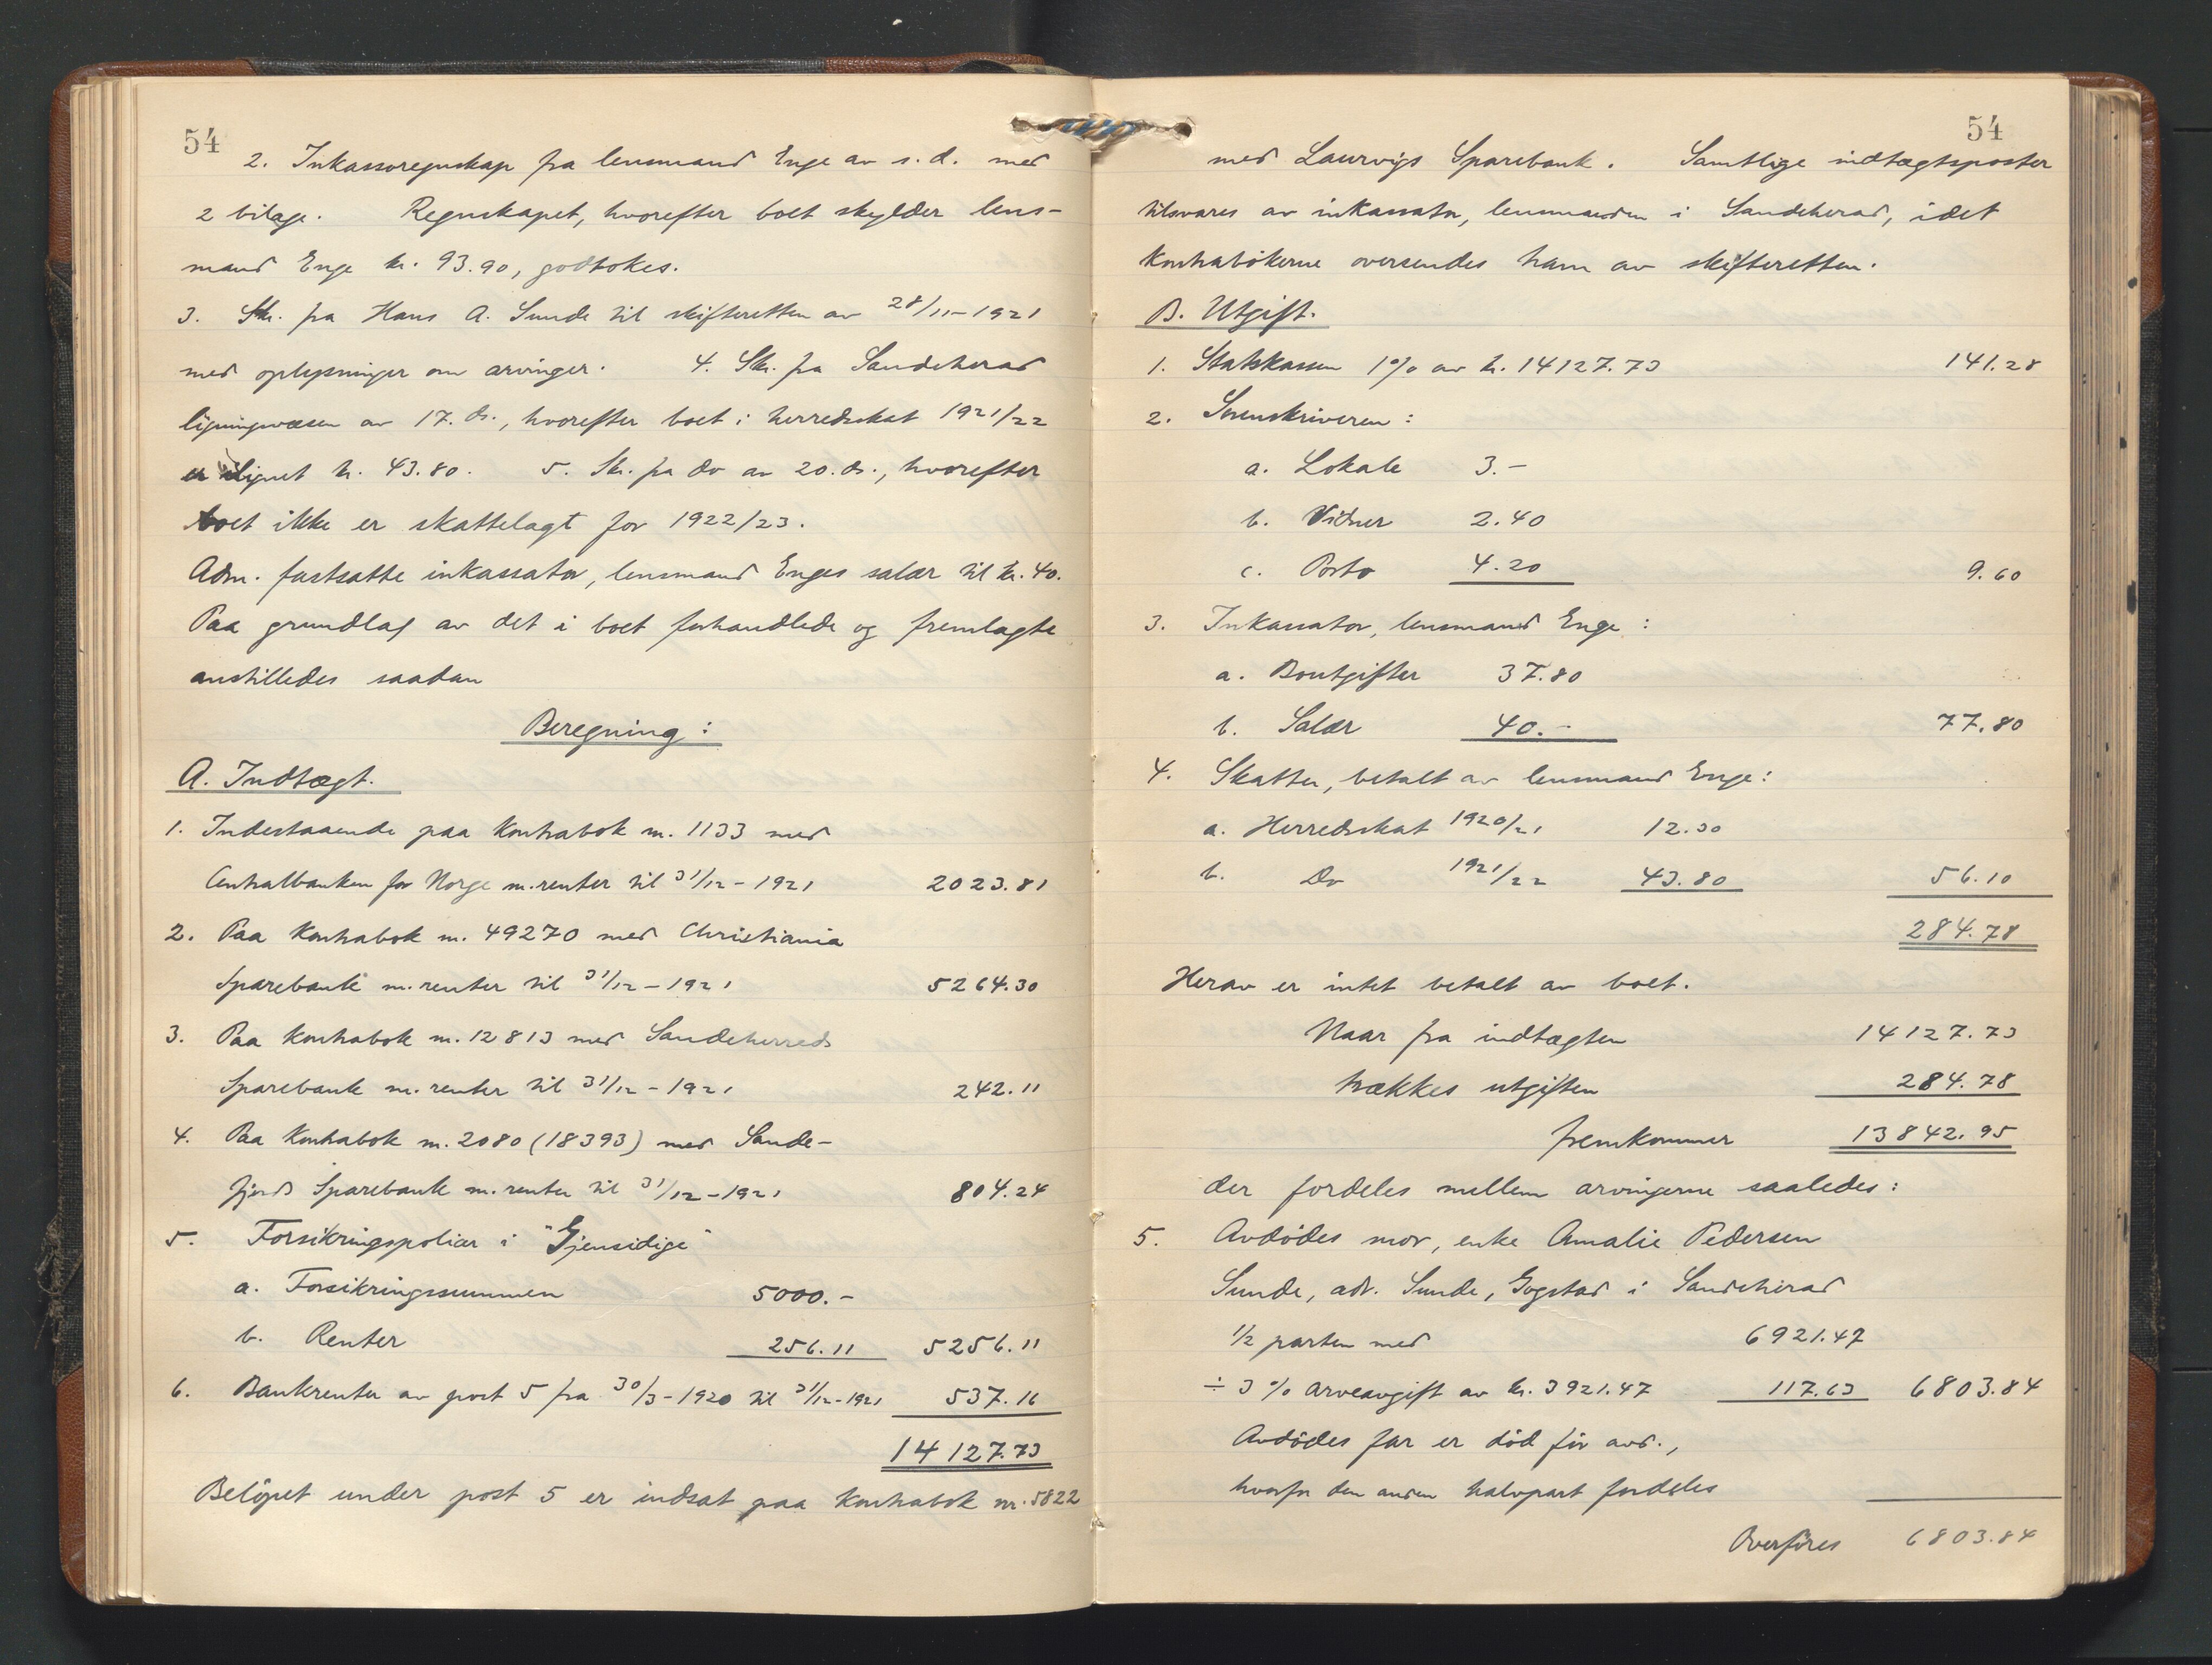 54
2. Inkassoregnskap fra lensmand Enge av s. d. med
2 bilage. Regnskapet, hvorefter boet skylder lens-
mand Enge kr. 93.90, godtokes.
3. Skr. fra Hans A. Sunde til skifteretten av 28/11-1921
med oplysninger om arvinger. 4. Skr. fra Sandeherad
ligningsvæsen av 17. ds., hvorefter boet i herredsskat 1921/22
er lignet kr. 43.80. 5. Skr. fra do av 20. ds., hvorefter
boet ikke er skattelagt for 1922/23.
Adm. fastsatte inkassator, lensmand Enges salær til kr. 40.
Paa grundlag av det i boet forhandlede og fremlagte
anstilledes saadan
Beregning:
A. Indtægt.
1. Indestaaende paa kontrabok nr. 1133 med
Centralbanken for Norge m. renter til 31/12-1921 2023.81
2. Paa kontrabok nr. 49270 med Christiania
Sparebank m. renter til 31/12-1921 5264.30
3. Paa kontrabok nr. 12813 med Sandeherreds
Sparebank m. renter til 31/12-1921 242.11
4. Paa kontrabok nr. 2080 (18393) med Sande-
fjords Sparebank m. renter til 31/12-1921 804.24
5. Forsikringspolicer i "Gjensidige"
a. Forsikringssummen 5000.-
b. Renter 256.11 5256.11
6. Bankrenter av post 5 fra 30/3-1920 til 31/12-1921 537.16
14127.73
Beløpet under post 5 er indsat paa kontrabok nr. 5822
54
med Laurvigs Sparebank. Samtlige indtægtsposter
tilsvares av inkassator, lensmanden i Sandeherad, idet
kontrabøkerne oversendes ham av skifteretten.
B. Utgift.
1. Statskassen 1% av kr. 14127.73 141.28
2. Sorenskriveren:
a. Lokale 3.-
b. Vidner 2.40
c. Porto 4.20 9.60
3. Inkassator, lensmand Enge:
a. Boutgifter 37.80
b. Salær 40.- 77.80
4. Skatter, betalt av lensmand Enge:
a. Herredsskat 1920/21 12.30
b. Do 1921/22 43.80 56.10
284.78
Herav er intet betalt av boet.
Naar fra indtægten 14127.73
trækkes utgiften 284.78
fremkommer 13842.95
der fordeles mellem arvingerne saaledes:
5. Avdødes mor, enke Amalie Pedersen
Sunde, adr. Sunde, Gogstad i Sandeherad
1/2 parten med 6921.47
÷ 3% arveavgift av kr. 3921.47 117.63 6803.84
Avdødes far er død før avd.,
hvorfor den anden halvpart fordeles
Overføres 6803.84